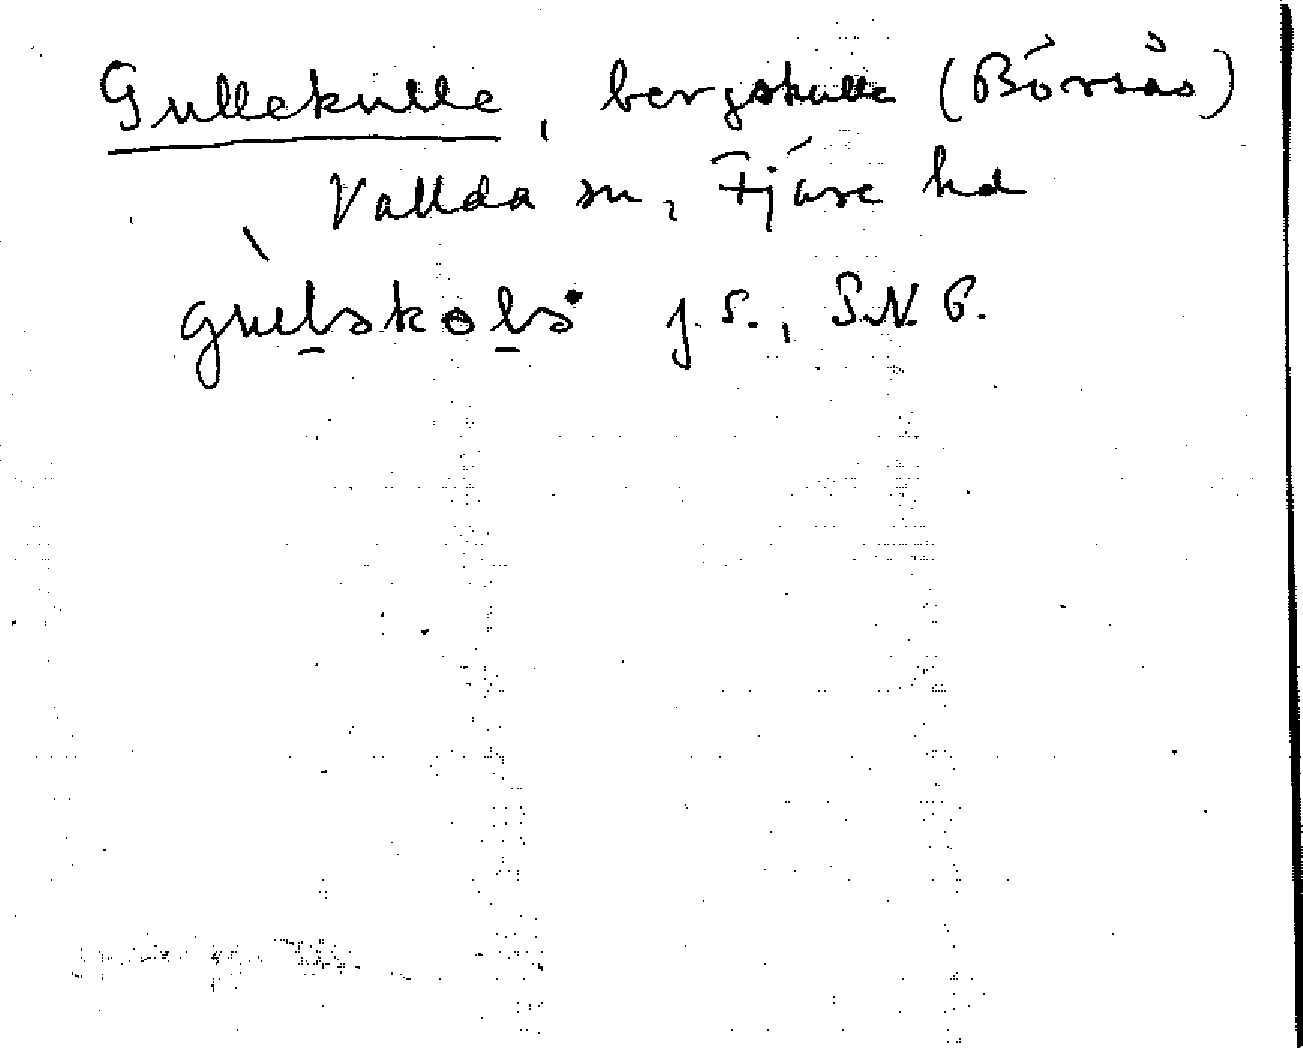 Gullekulle, bergskulle (Börsås)
Vallda sn, Fjäre hd
J. S., S.N. B.